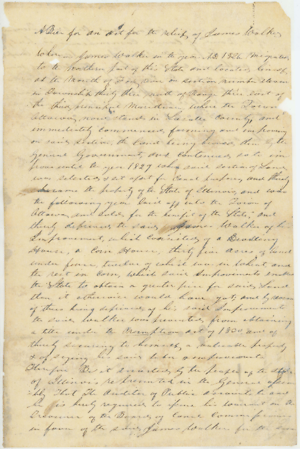 A Bill for an act for the relief of James Walker
Where James Walker in the year AD 1825 emigrated
to the Northern part of this State and located himself
at the Mouth of Fox River on section number eleven
in Township thirty three north of Range three East of
the third principal Meridian, where the Town of
Ottawa now stands in LaSalle County and
immediately commenced farming and improving
on said section, the land being owned then by the
general Government, and continued so to
the year 1829 when said section of land
was selected and set apart for Canal purposes and thereby
became the property of the State of Illinois, and was
the following year laid off into the Town of
Ottawa and sold for the benefit of the State, and
thereby deprived the said James Walker of his
Improvement, which consisted of a Dwelling
House, a Corn House, thirty five acres of land
under fence, twelve of which was in wheat and
the rest in corn, which said Improvements enabled
the State to obtain a greater price for said land
than it otherwise would have got, and by reason
of there being deprived of his said Improvement
the said Walker was prevented from obtaining
a title under the Preemption Act of 1830, and
thereby
of his said labor &
Therefore Be it enacted by the people of the State
of Illinois represented in the General Assem-
bly That the Auditor of Public Accounts be and
he is hereby required to issue his warrant on the
Treasurer of the Board of Canal Commissioners
in favor of the said James Walker for the sum